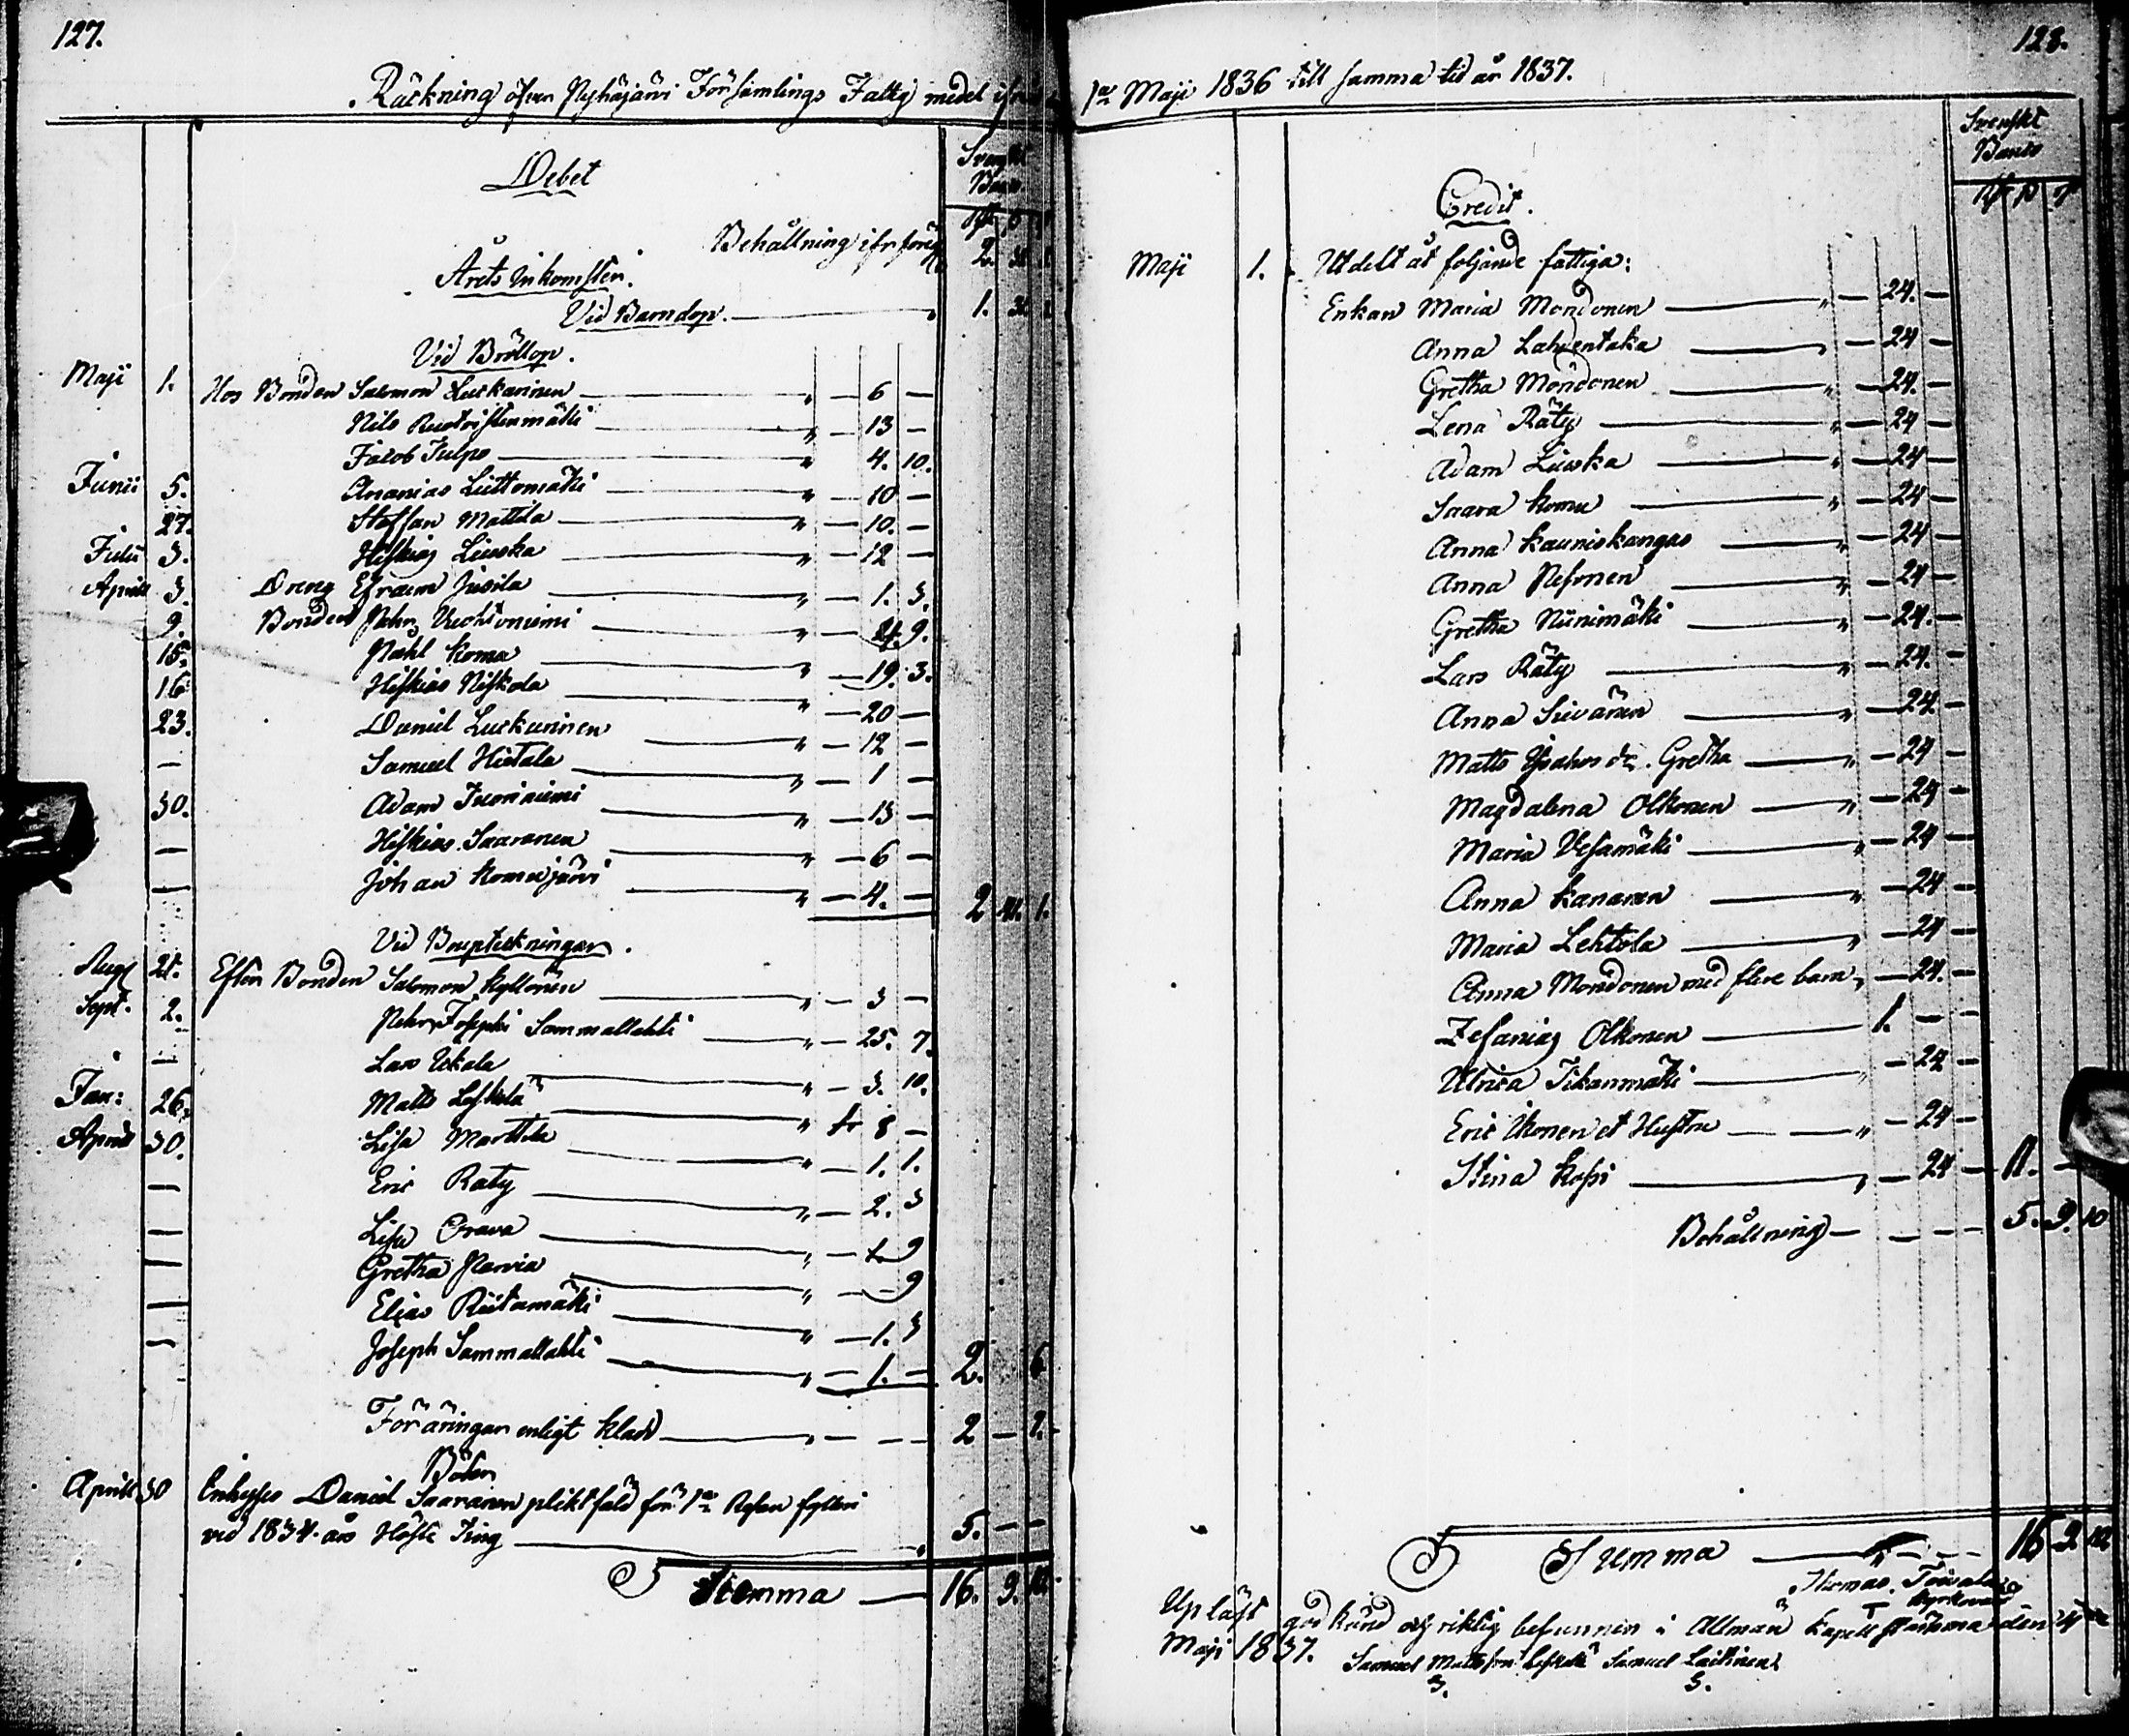 127.
Räckning öfver Pyhäjärvi Församlings Fattig medel ifrån
Debet
Svenskt
Banco
Behållning ifr föreg 2.
Årets Inkomster.
Vid Barndop. 1.
Vid Bröllop.
Maji 1. Hos Bonden Salomon Luckarinen " — 6 —
Nils " — 13 —
Jacob Julpo " 4. 10.
Junii 5. Ananias Liittomäki " — 10 —
27. Staffan Mattila " — 10. —
Julii 3. Hiskias Liuska " — 12 —
Aprill 3. Dreng Efraim Jusila " — 1. 3.
9. Bonden Pehr Vuohtoniemi " — 9.
15. Påhl Koma " — 19. 3.
16 Hiskias Niskola " — 20 —
23. Daniel Luckarinen " — 12 —
— Samuel Hietala " — 1 —
30. Adam Tuoriniemi " — 13 —
— Hiskias Saaranen " — 6 —
— Johan Komujärvi " — 4. — 2 41. 1.
Vid Boupteckningar.
Aug 21. Efter Bonden Salomon Kyllönen " — 3 —
Sept. 2. Pehr Josephi Sammallahti " — 25. 7.
— Lars Ukala " — 3. 10.
Jan: 26. Matts Leskelä " 8 —
Aprill 30. Lisa Marttila " — 1. 1.
— Eric Räty " — 2. 3
— Lisa Orava " — 9
— Gretha Parvia " — 9
— Elias Riitamäki " — 1. 3
— Joseph Sammallahti " — 1. — 2. 6
Föräringar enligt Klad " — — — 2 —
Böter
Aprill 30 Inhyses Daniel Saaranen pliktfäld för 1a Resan fylleri
vid 1834 års Höste Ting " 5. — —
Summa 16. 9. 10.
128.
1a Maji 1836 till samma tid år 1837.
Svenskt
Banco
Credit.
Maji 1. Utdelt åt följande fattiga:
Enkan Maria Mondonen " — 24. —
Anna Lahdentaka — 24 —
Gretha Möndönen " — 24. —
Lena Räty " — 24 —
Adam Liuska " — 24 —
Saara Komu " — 24 —
Anna Kauniskangas " — 24 —
Anna " — 24 —
Gretha Niinimäki " — 24. —
Lars Räty " — 24. —
Anna Siivären " — 24. —
Matts dr. Gretha " — 24 —
Magdalena Olkonen " — 24 —
Maria Vesamäki " — 24 —
Anna Kananen " — 24 —
Maria Lehtola " — 24 —
Anna Mondonen med flere barn " — 24. —
Zefanias Olkonen 1. — —
Ulrica Tikanmäki " — 24 —
Eric Ikonen et Hustru " — 24 —
Stina Kossi " — 24 — 11. —
Behållning — — — — 5. 9. 10
Summa — — — 16 9 10
Thomas Toivola
Kyrkovärd
Upläst god känd och riktig befunnen i Allmän Kapell Stämma den 4de
Maji 1837. Samuel Mattsson Leskelä Samuel Laitinen